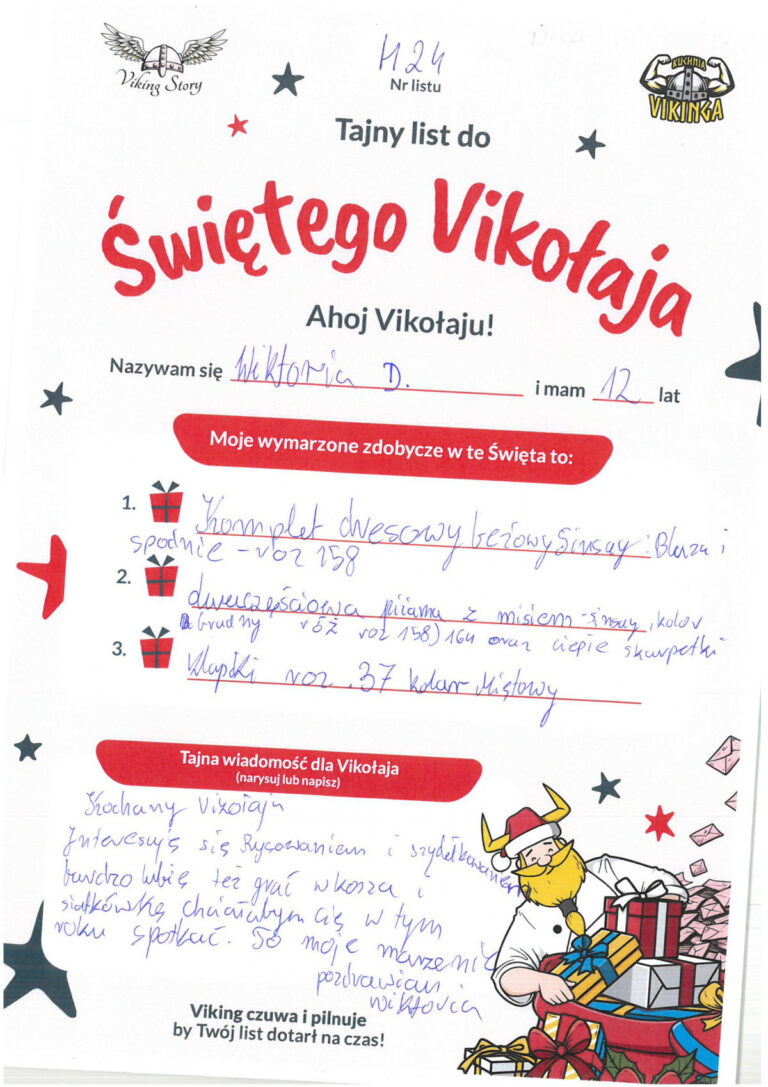 Viking Story
H24
Nr listu
KUCHNIA
VIKINGA
Tajny list do
Świętego Vikołaja
Ahoj Vikołaju!
Nazywam się Wiktoria D. i mam 12 lat
Moje wymarzone zdobycze w te Święta to:
1. Komplet dresowy beżowy Sinsay: Bluza i
spodnie - roz 158
2. dwuczęściowa piżama z misiem - sinsay, kolor
Brudny róż roz 158) 164 oraz ciepie skarpetki
3. Klapki roz .37 kolor Miętowy
Tajna wiadomość dla Vikołaja
(narysuj lub napisz)
Kochany Vikołaju
Interesuję się Rysowaniem i szydełkowaniem
bardzo lubię też grać w kosza i
siatkówkę chciałabym cię w tym
roku spotkać. To moje marzenie
pozdrawiam
Wiktoria
Viking czuwa i pilnuje
by Twój list dotarł na czas!